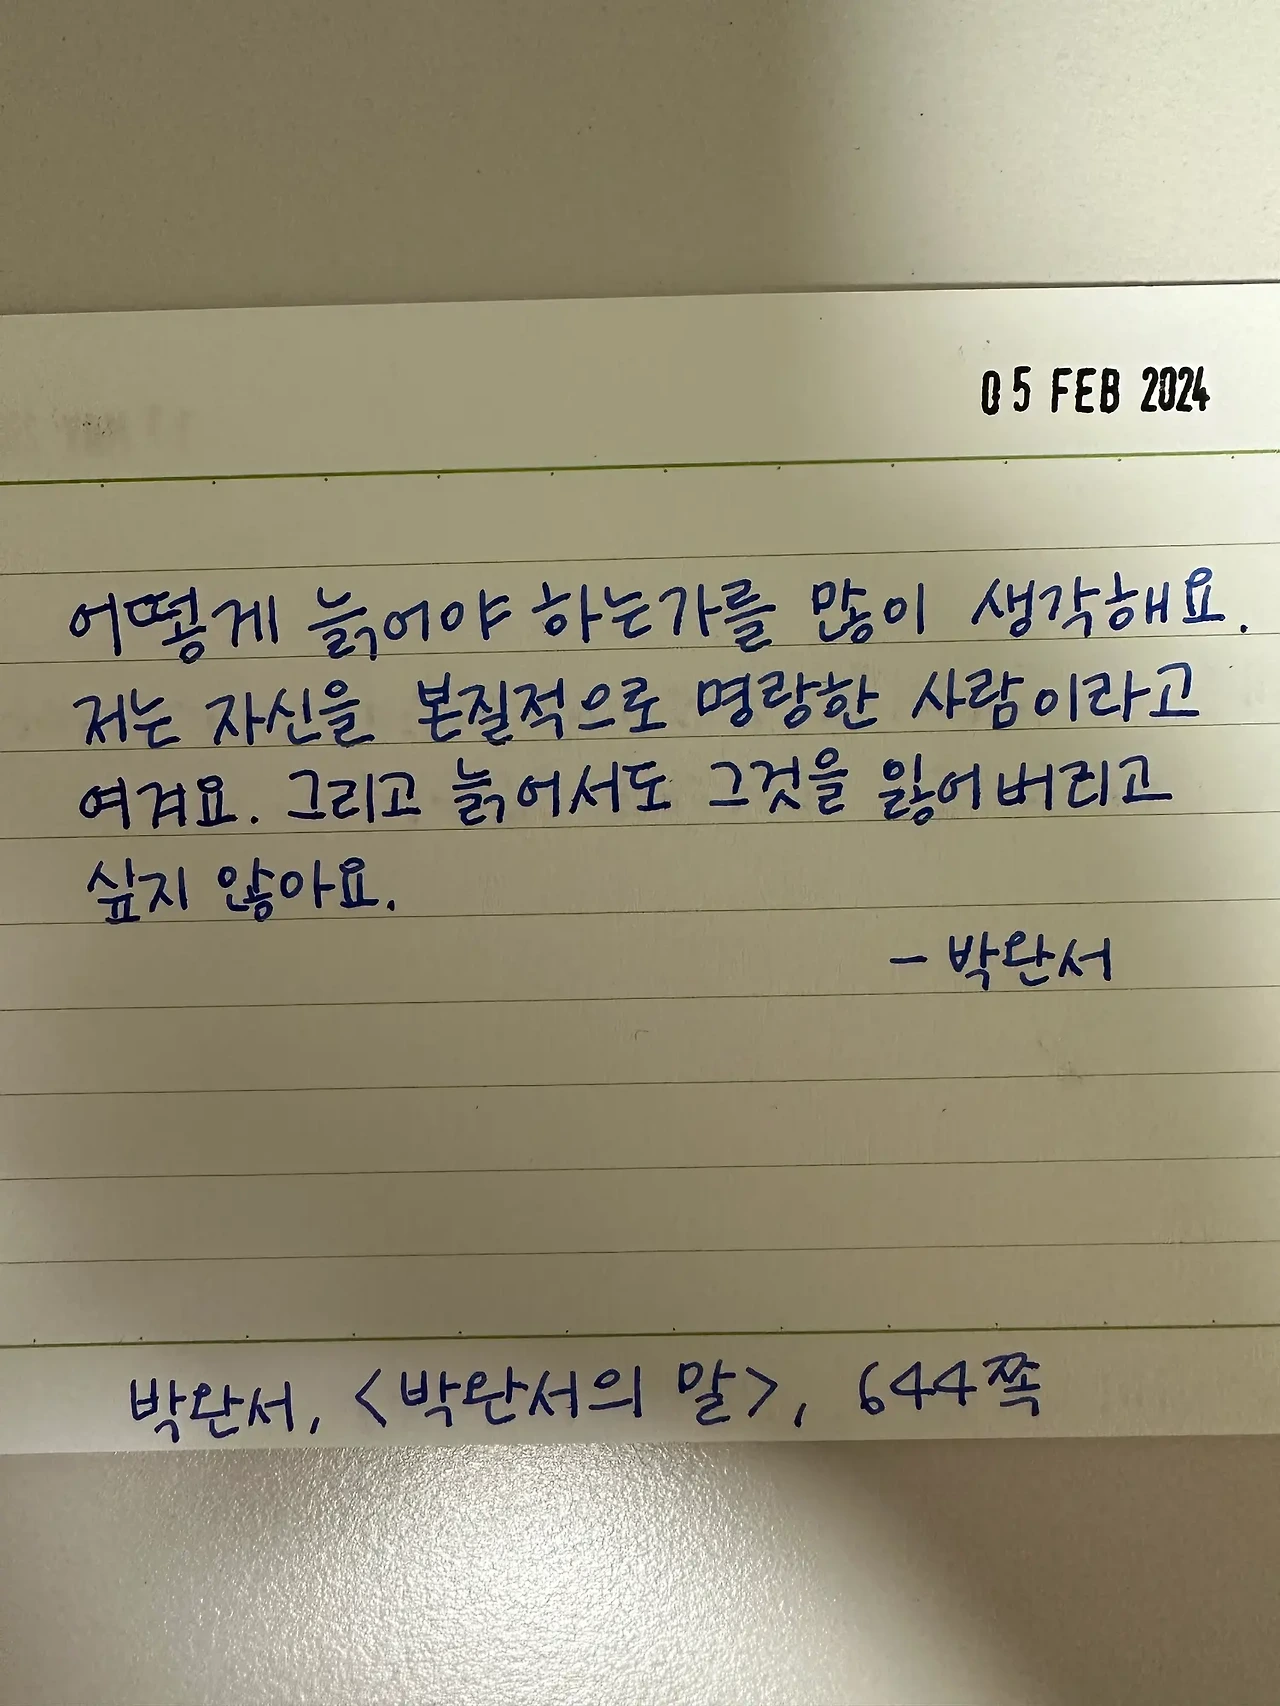 05 FEB 2024
어떻게 늙어야 하는가를 많이 생각해요.
저는 자신을 본질적으로 명랑한 사람이라고
여겨요. 그리고 늙어서도 그것을 잃어버리고
싶지 않아요.
- 박완서
박완서, <박완서의 말>, 644쪽